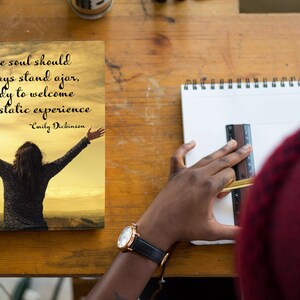 soul should
stand ajar,
to welcome
experience
~Emily Dickinson